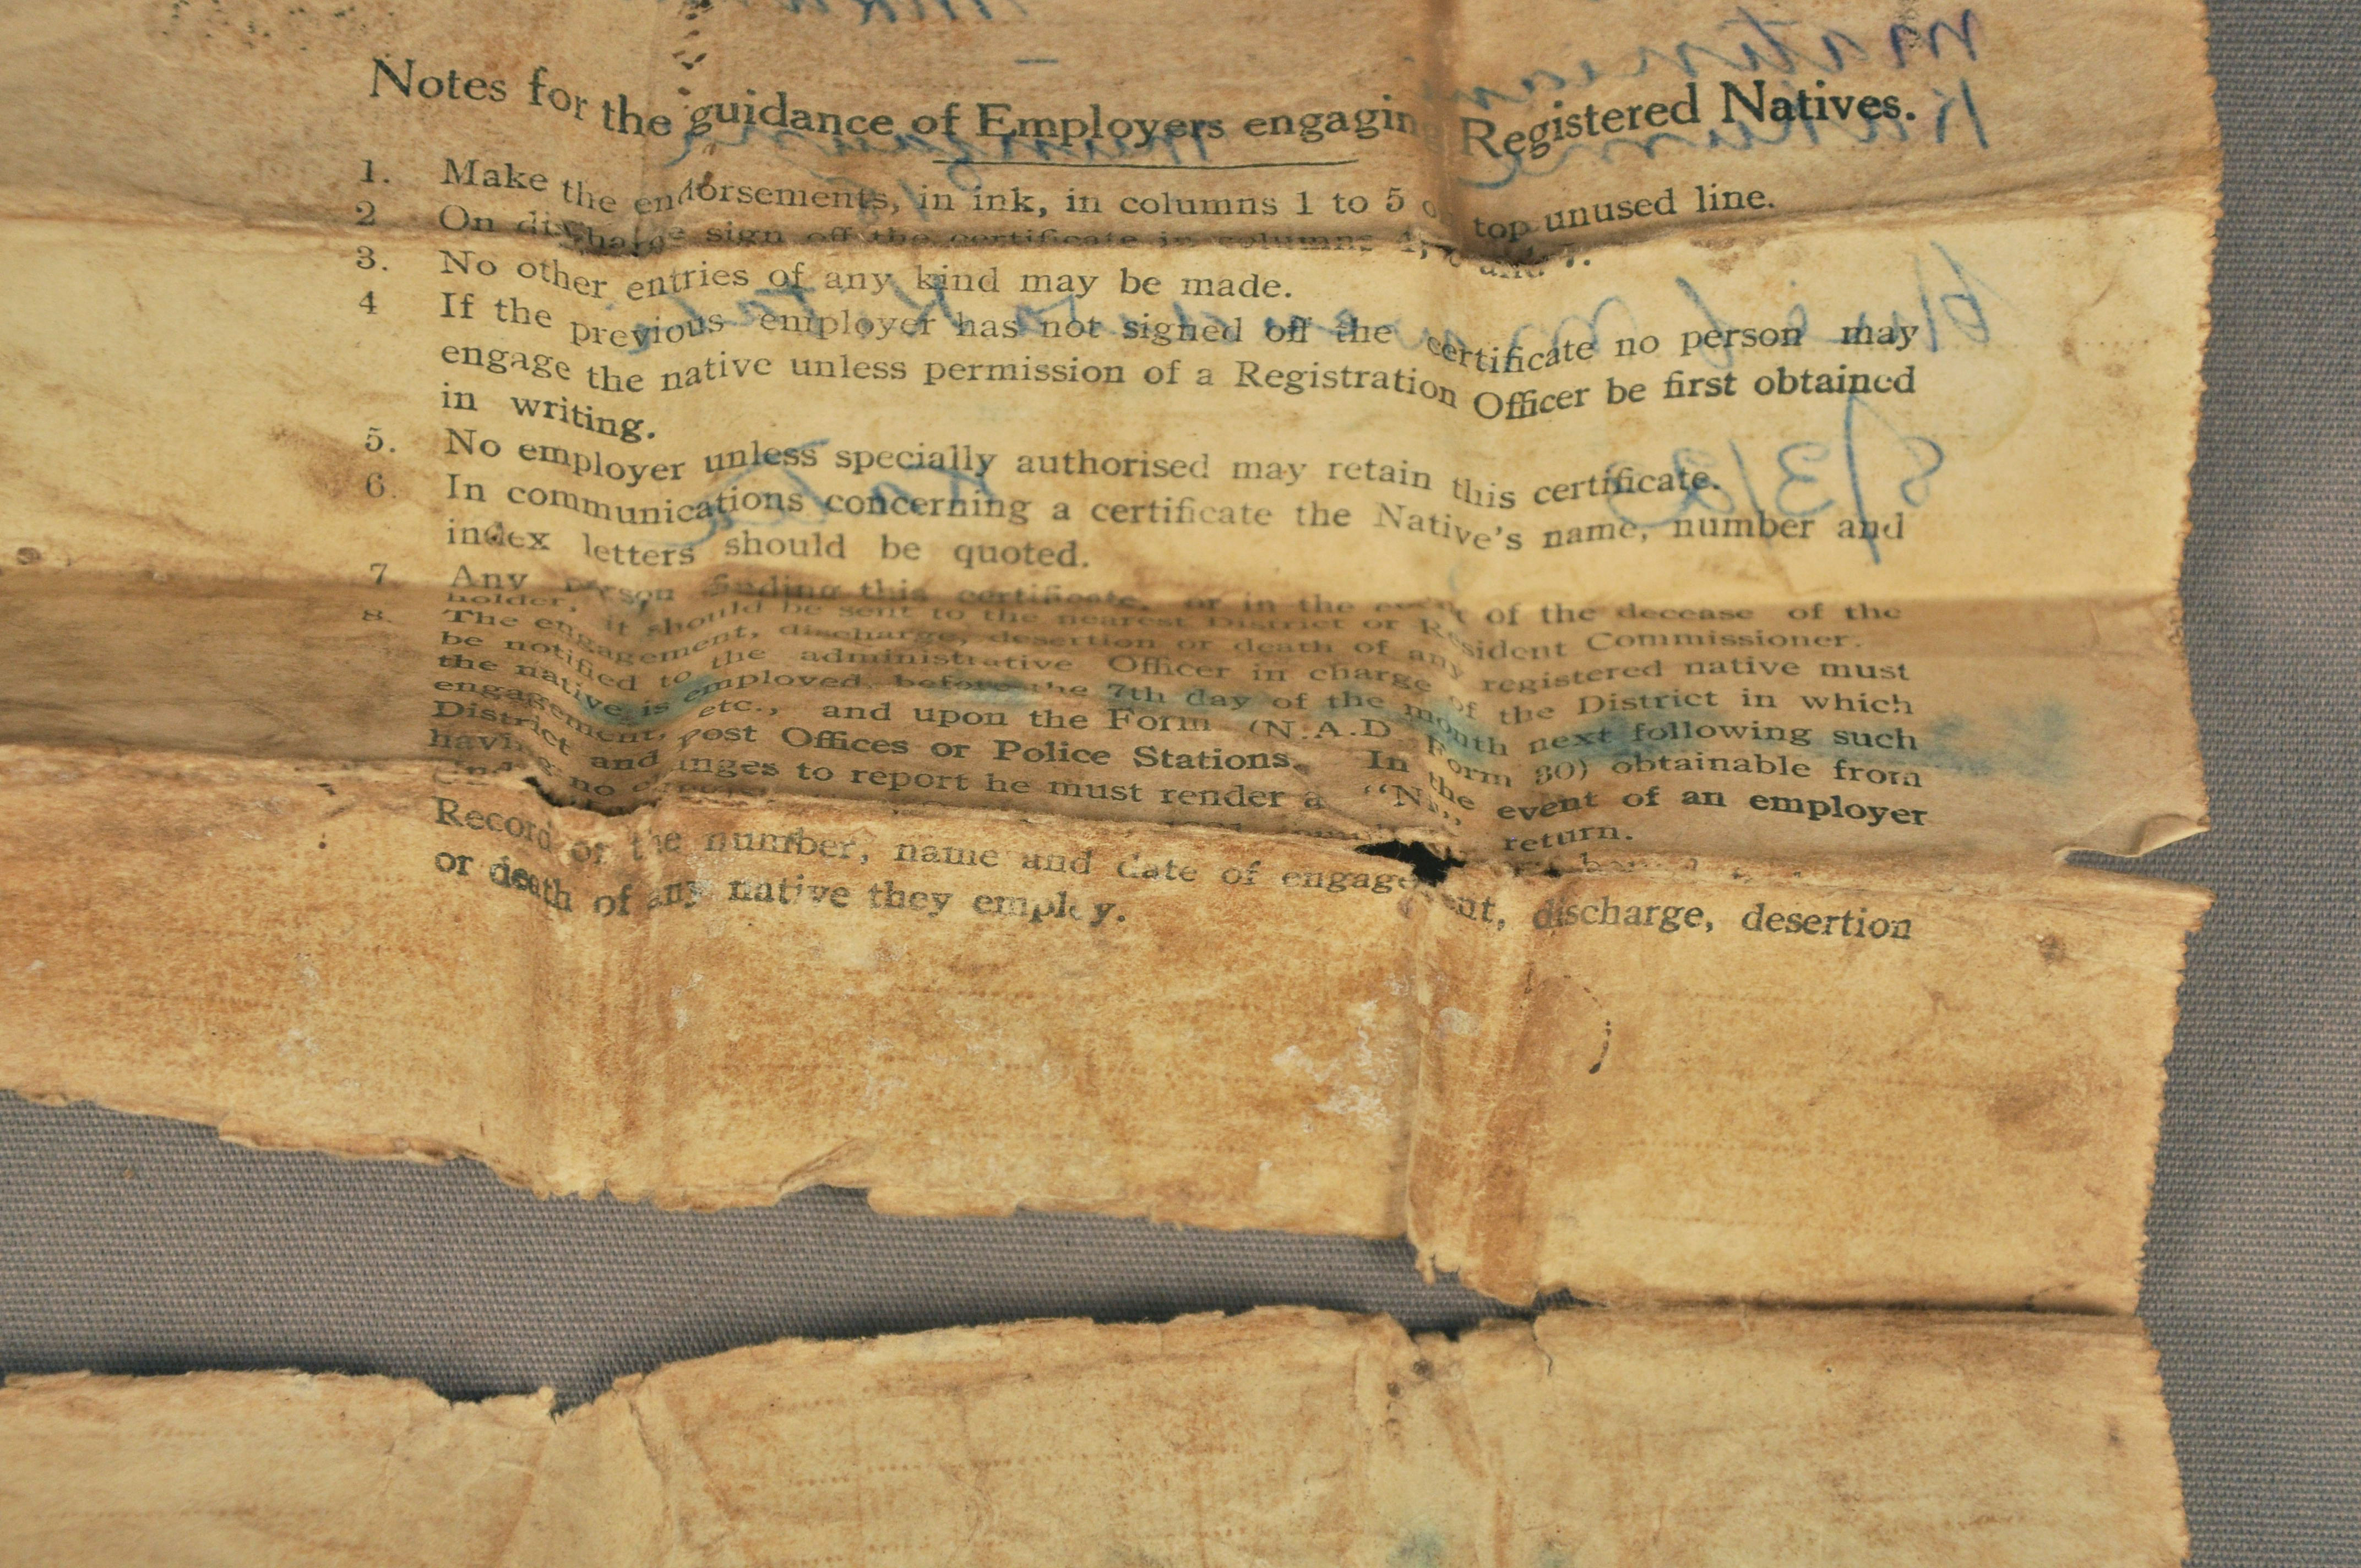 Notes for the guidance of Employers engaging Registered Natives.
1. Make the endorsements, in ink, in columns 1 to 5 on top unused line.
2 On discharge sign off the certificate in columns 4, 6 and 7.
3. No other entries of any kind may be made.
4 If the previous employer has not signed off the certificate no person may
engage the native unless permission of a Registration Officer be first obtained
in writing.
5. No employer unless specially authorised may retain this certificate.
6. In communications concerning a certificate the Native's name, number and
index letters should be quoted.
7 Any person finding this certificate, or in the event of the decease of the
holder, it should be sent to the nearest District or Resident Commissioner.
8. The engagement, discharge, desertion or death of any registered native must
be notified to the administrative Officer in charge of the District in which
the native is employed, before the 7th day of the month next following such
engagement, etc., and upon the Form (N.A.D. Form 30) obtainable from
District and Post Offices or Police Stations. In the event of an employer
having no changes to report he must render a "Nil" return.
Record of the number, name and date of engagement, discharge, desertion
or death of any native they employ.